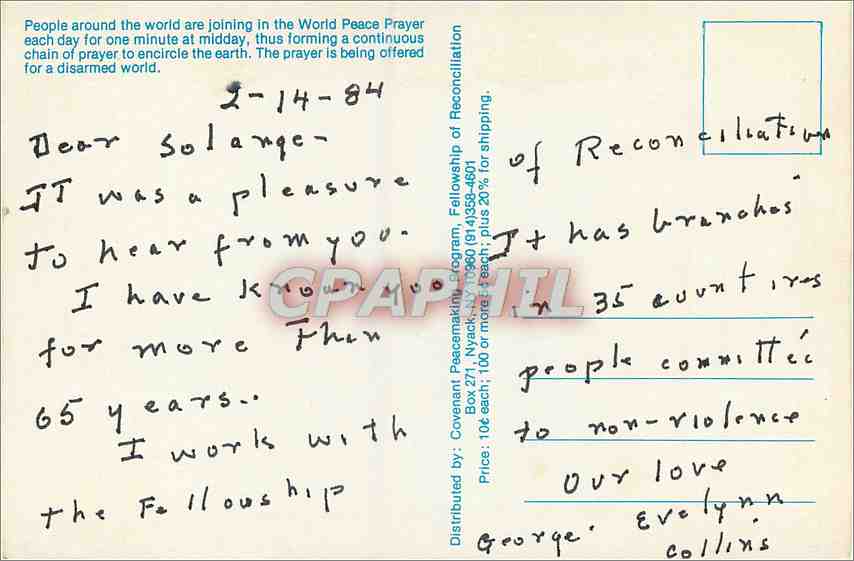 People around the world are joining in the World Peace Prayer
each day for one minute at midday, thus forming a continuous
chain of prayer to encircle the earth. The prayer is being offered
for a disarmed world.
2-14-84
Dear Solange-
IT was a pleasure
to hear from you.
I have known you
for more Than
65 years..
I work with
the Fellowship
Distributed by: Covenant Peacemaking Program, Fellowship of Reconciliation
Box 271, Nyack, NY 10960 (914)358-4601
Price: 10¢ each; 100 or more each; plus 20% for shipping.
of Reconciliation
It has branches
in 35 countires
people committed
to non-violence
our love
George. Evelynn
Collins
CPAPHIL